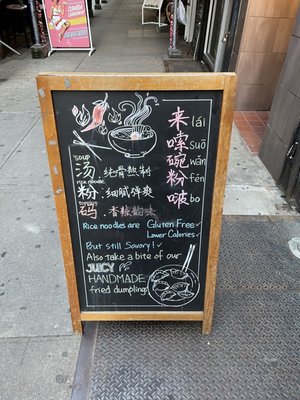 来 lái
嗦 suō
碗 wǎn
粉 fěn
啵 bo
soup
汤 : 纯骨熬料
rice noodle
粉 : 细腻
码 : 香辣韵味
Rice noodles are Gluten Free ✓
Lower Calories ✓
But still Savory! ✓
Also take a bite of our
JUICY
HANDMADE
fried dumplings